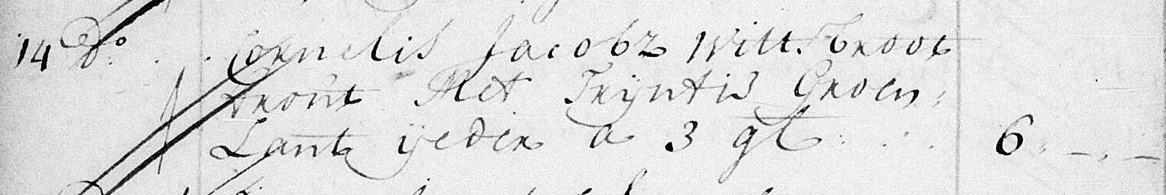 14 do. Cornelis Jacobz Witt.broot
trout Met Trijntis Groen,
Lant ijeder a 3 gl . . . 6 . – . –